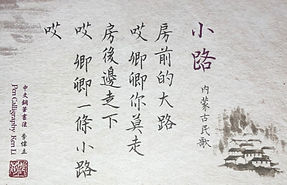 小路
內蒙古民歌
房前的大路
哎卿卿你莫走
房後邊走下
哎卿卿一條小路
哎
中文鋼筆書法 李偉立
Pen Calligraphy Ken Li